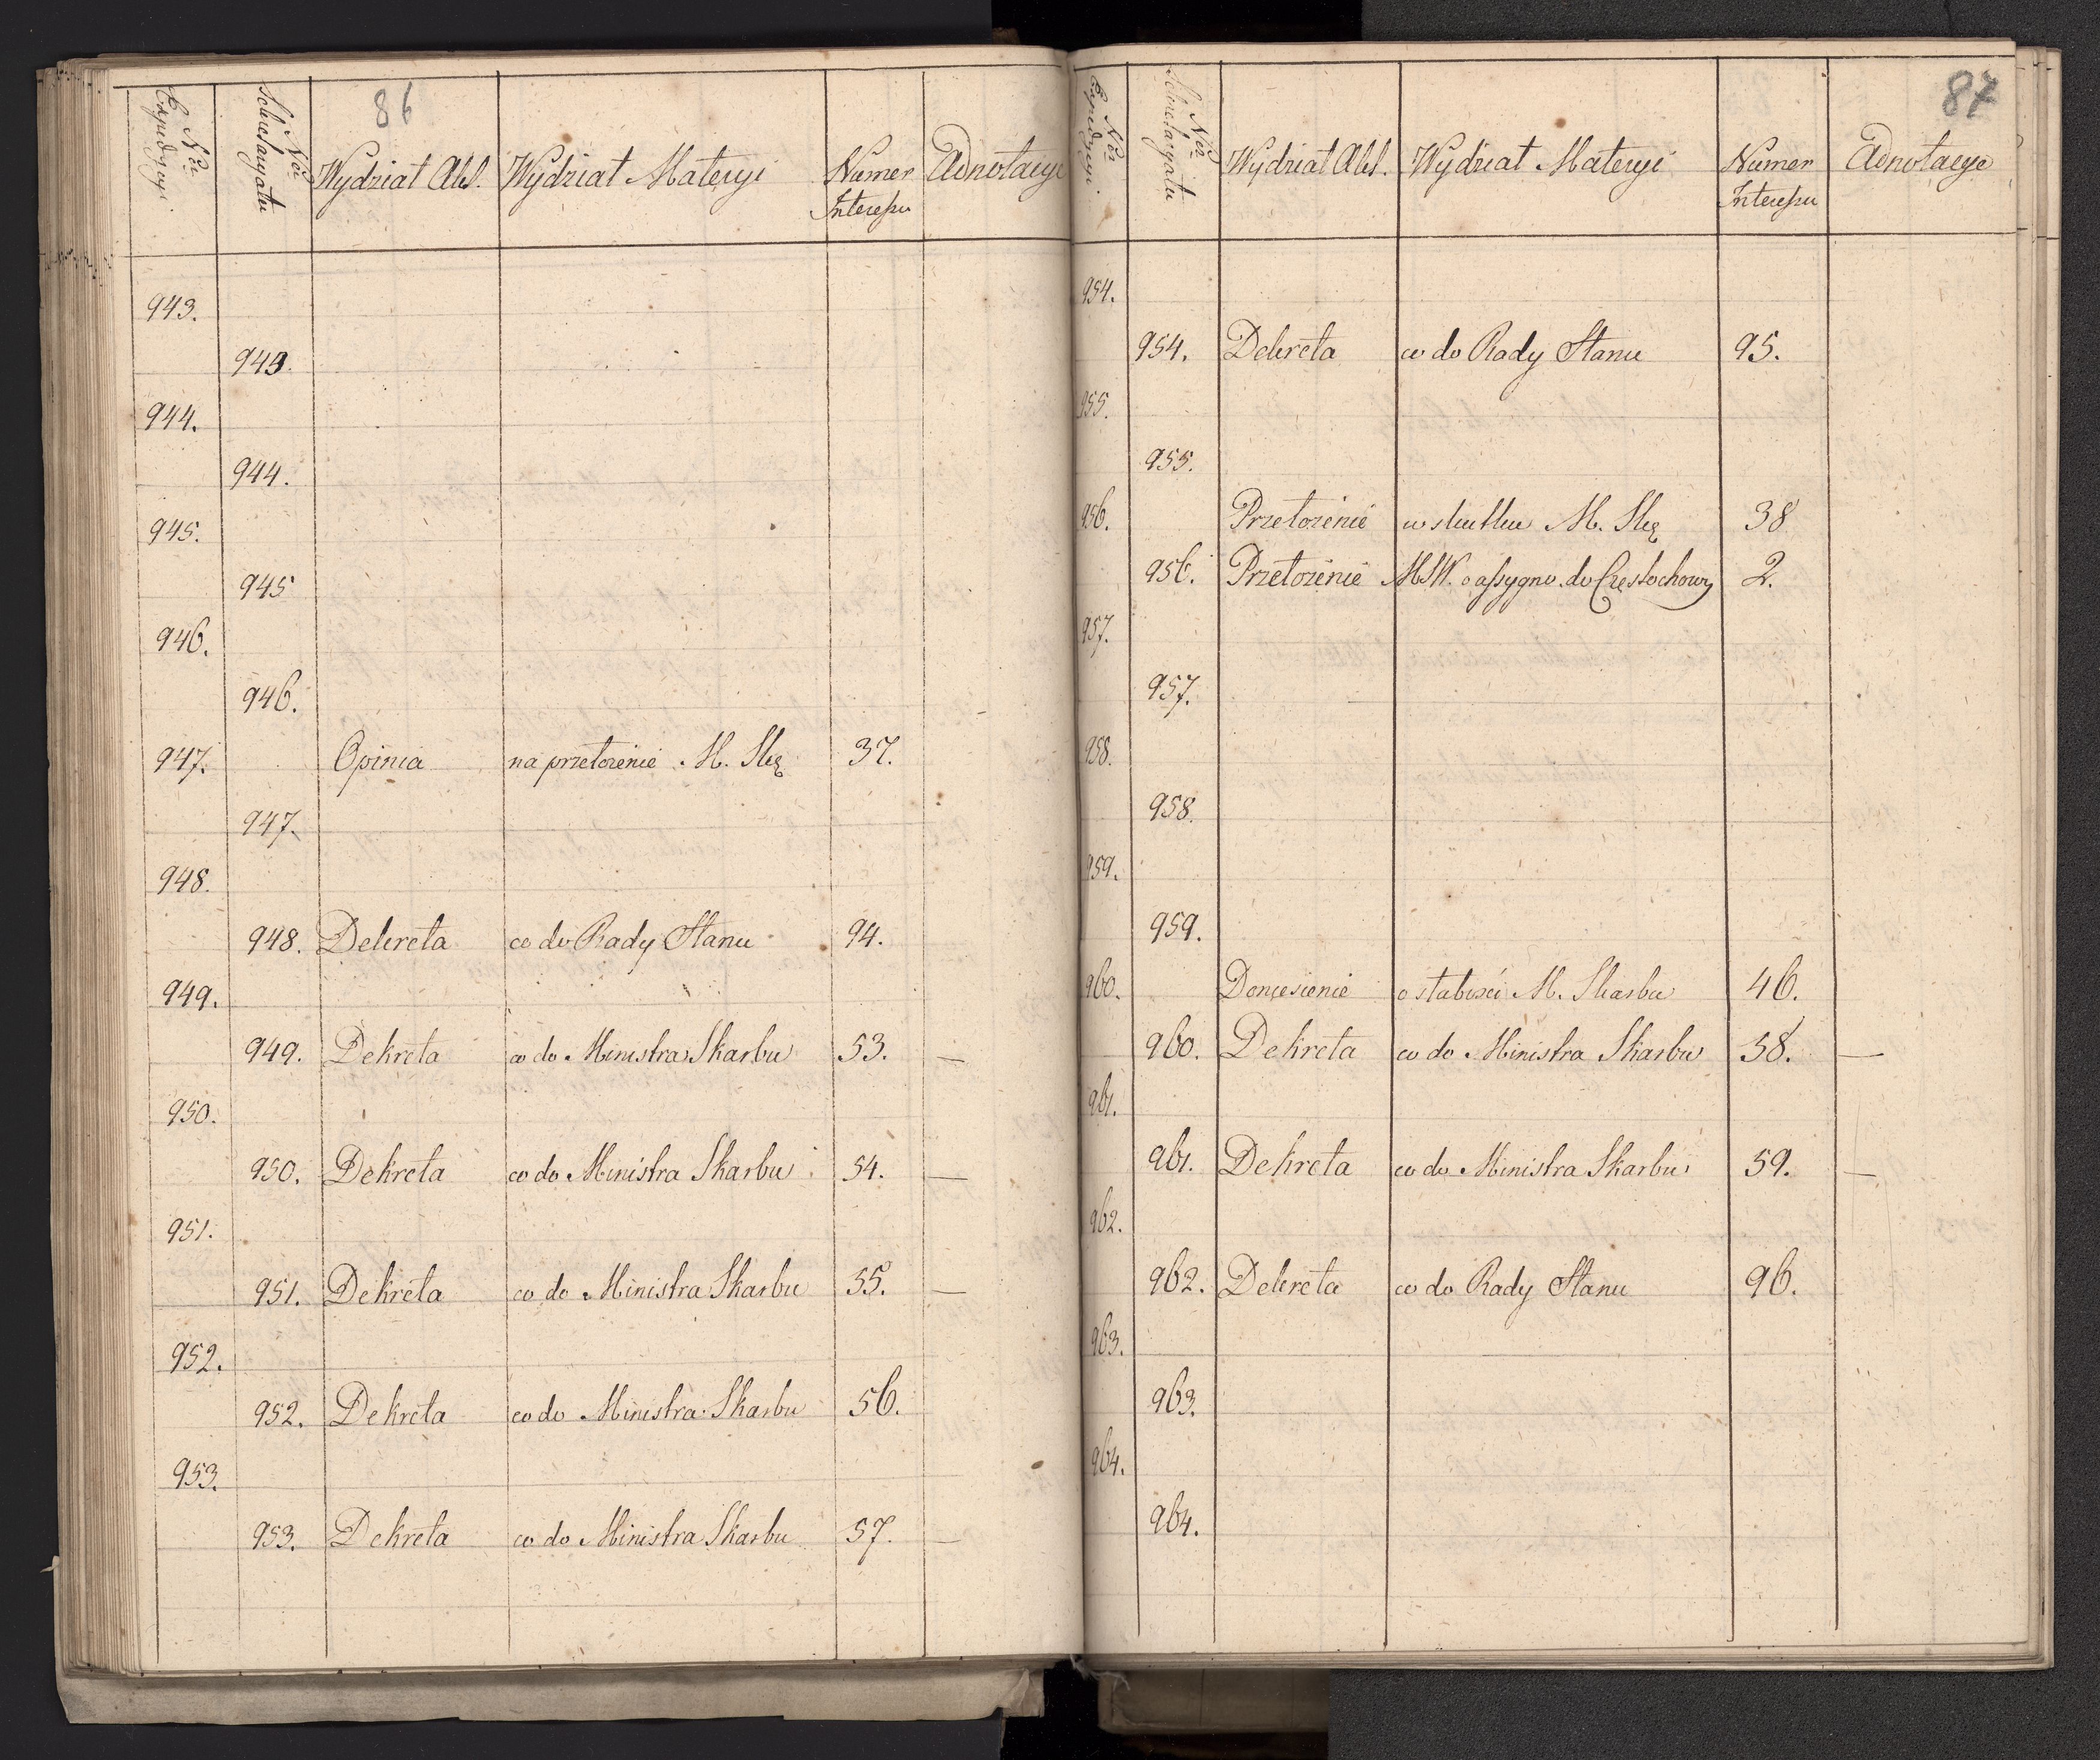 86
Nro Expedycyi.
Nro Sekretaryatu
Wydział Akt.
Wydział Materyi
Numer Interessu
Adnotacye
943.
943.
944.
944.
945.
945
946.
946.
947. Opinia na przełożenie M. Skę 37.
947.
948.
948. Dekreta co do Rady Stanu 94.
949.
949. Dekreta co do Ministra Skarbu 53. —
950.
950. Dekreta co do Ministra Skarbu 54. —
951.
951. Dekreta co do Ministra Skarbu 55. —
952.
952. Dekreta co do Ministra Skarbu 56.
953.
953. Dekreta co do Ministra Skarbu 57. —
87
Nro Expedycyi.
Nro Sekretaryatu
Wydział Akt.
Wydział Materyi
Numer Interessu
Adnotacye
954.
954. Dekreta co do Rady Stanu 95.
955.
955.
956. Przełożenie w skutku M. Skę 38
956. Przełożenie MSW. o assygno. do Częstochowy 2.
957.
957.
958.
958.
959.
959.
960. Doniesienie o słabości M. Skarbu 46.
960. Dekreta co do Ministra Skarbu 58. —
961.
961. Dekreta co do Ministra Skarbu 59. —
962.
962. Dekreta co do Rady Stanu 96.
963.
963.
964.
964.